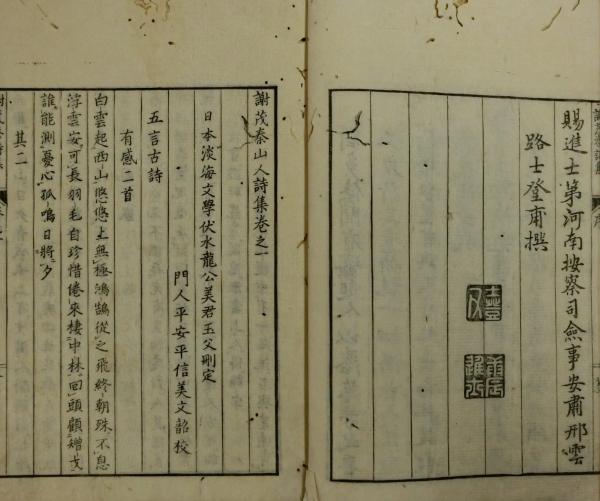 賜進士第河南按察司僉事安肅邢雲
路士登甫撰
謝茂秦山人詩集卷之一
日本淡海文學伏水龍公美君玉父刪定
門人平安平信美文韶校
五言古詩
有感二首
白雲起西山悠悠上無極鴻鵠從之飛終朝殊不息
浮雲安可長羽毛自珍惜倦來棲中林回頭顧矰戈
誰能測憂心孤鳴日將夕
其二